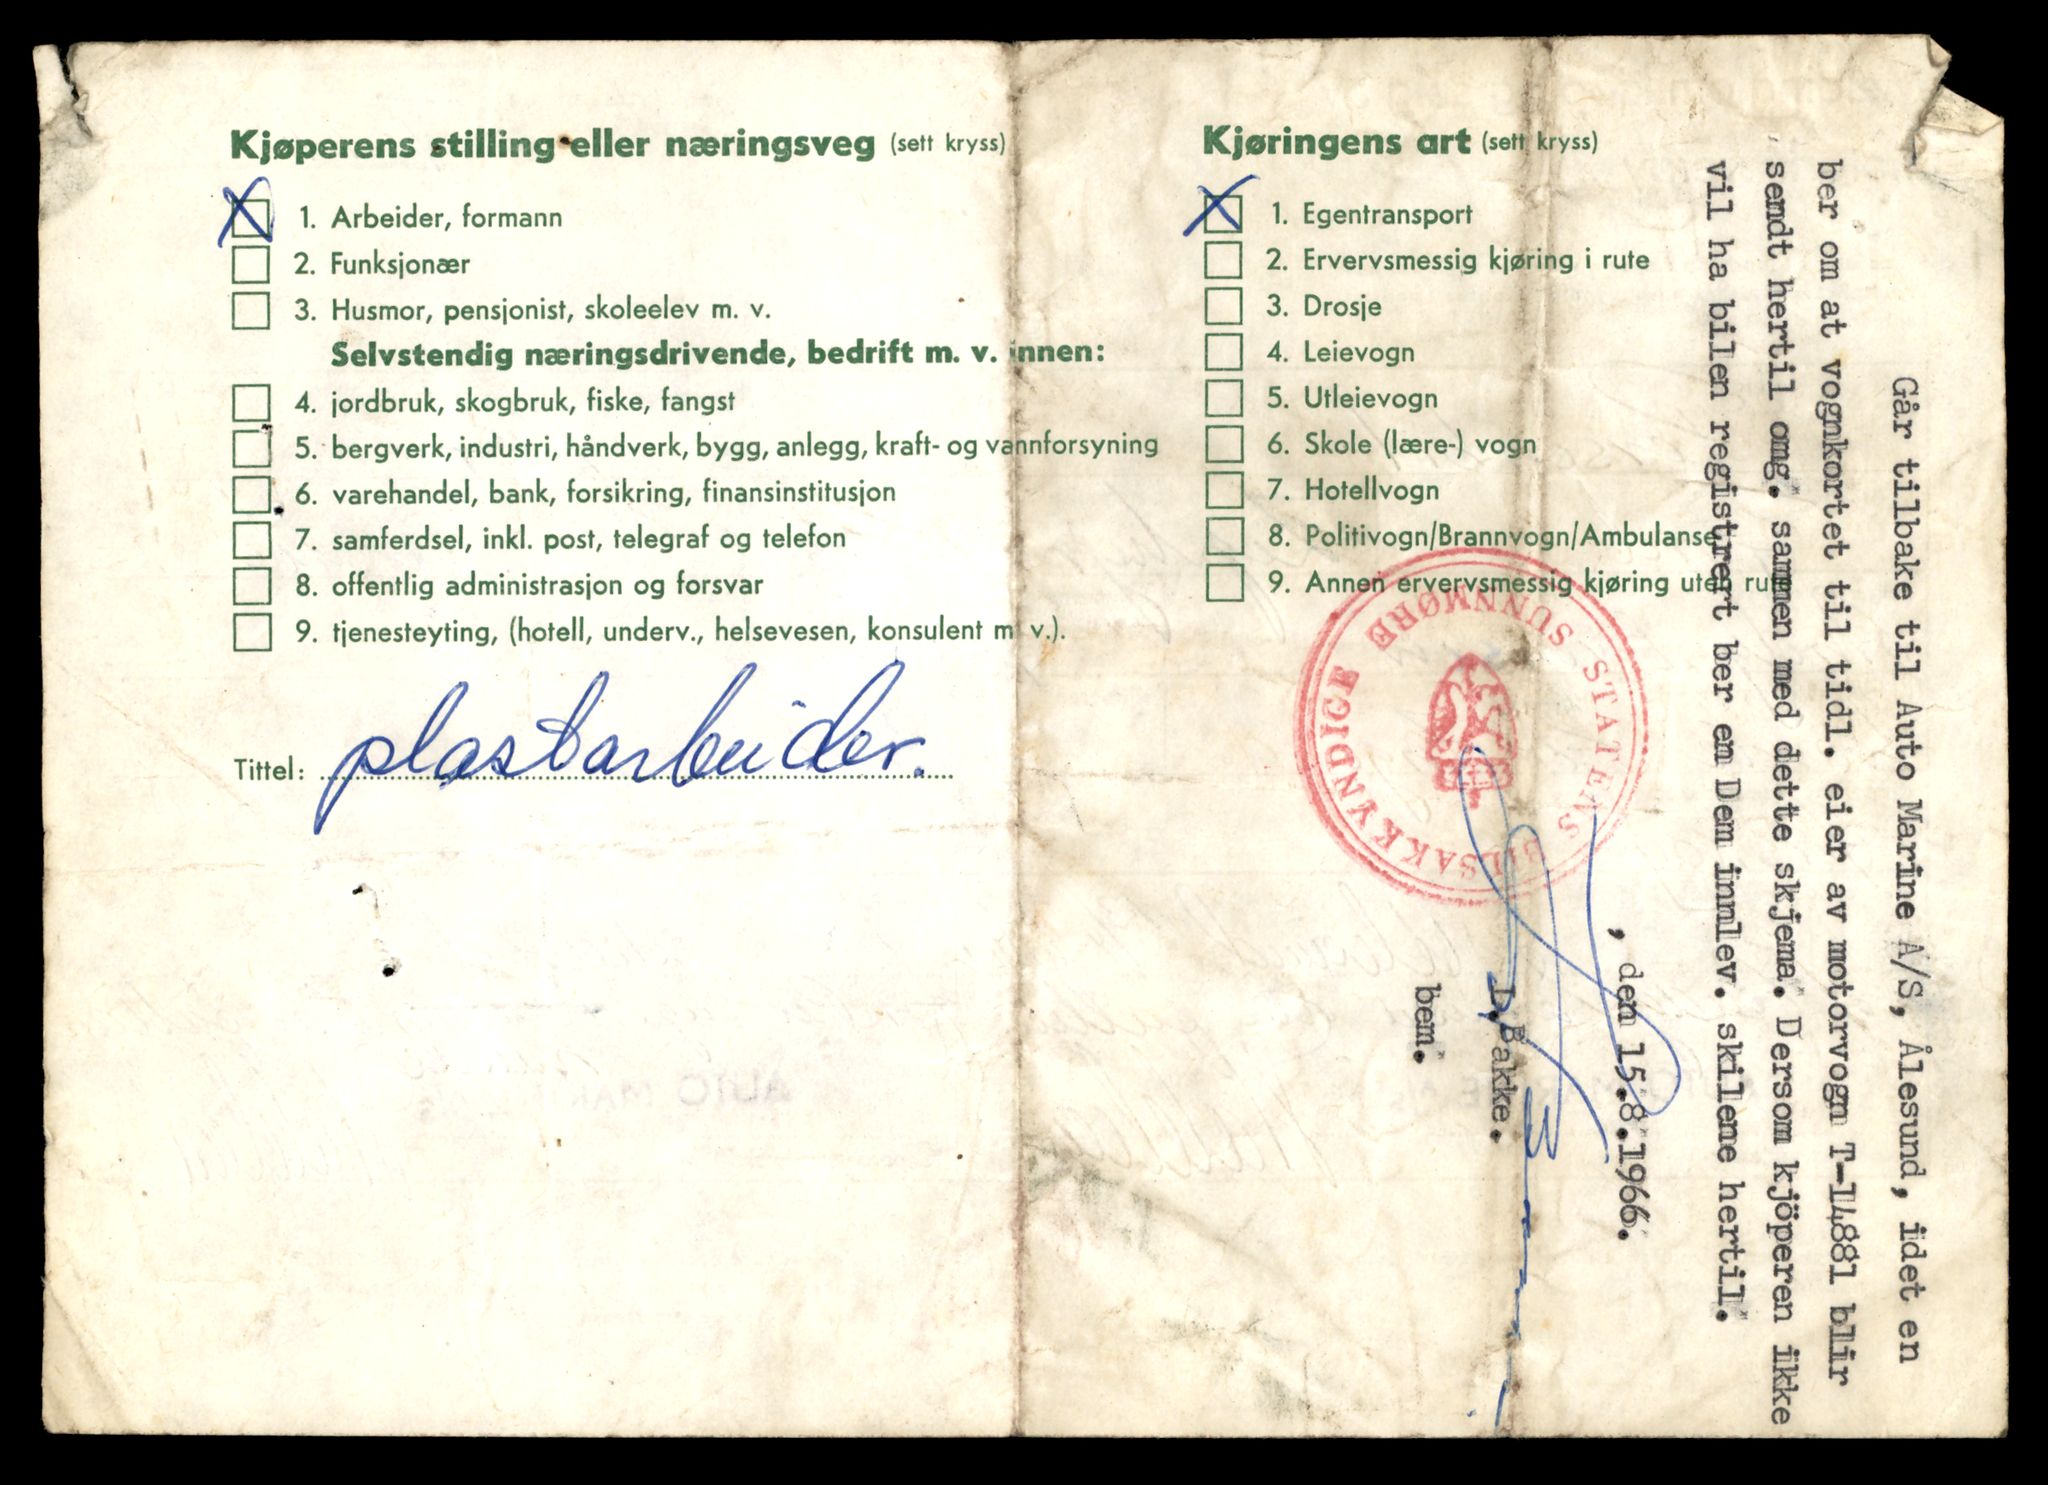 Kjøperens stilling eller næringsveg (sett kryss)
X 1. Arbeider, formann
2. Funksjonær
3. Husmor, pensjonist, skoleelev m. v.
Selvstendig næringsdrivende, bedrift m. v. innen:
4. jordbruk, skogbruk, fiske, fangst
5. bergverk, industri, håndverk, bygg, anlegg, kraft- og vannforsyning
6. varehandel, bank, forsikring, finansinstitusjon
7. samferdsel, inkl. post, telegraf og telefon
8. offentlig administrasjon og forsvar
9. tjenesteyting, (hotell, underv., helsevesen, konsulent m. v.).
Tittel: plastarbeider.
Kjøringens art (sett kryss)
X 1. Egentransport
2. Ervervsmessig kjøring i rute
3. Drosje
4. Leievogn
5. Utleievogn
6. Skole (lære-) vogn
7. Hotellvogn
8. Politivogn/Brannvogn/Ambulanse
9. Annen ervervsmessig kjøring uten rute
Går tilbake til Auto Marine A/S, Ålesund, idet en
ber om at vognkortet til tidl. eier av motorvogn T-14881 blir
sendt hertil omg. sammen med dette skjema. Dersom kjöperen ikke
vil ha bilen registrert ber em Dem innlev. skilene hertil.
, den 15.8.1966.
L.Bakke.
bem.
STATENS BILSAKKYNDIGE
SUNNMØRE
AUTO MARINE A/S